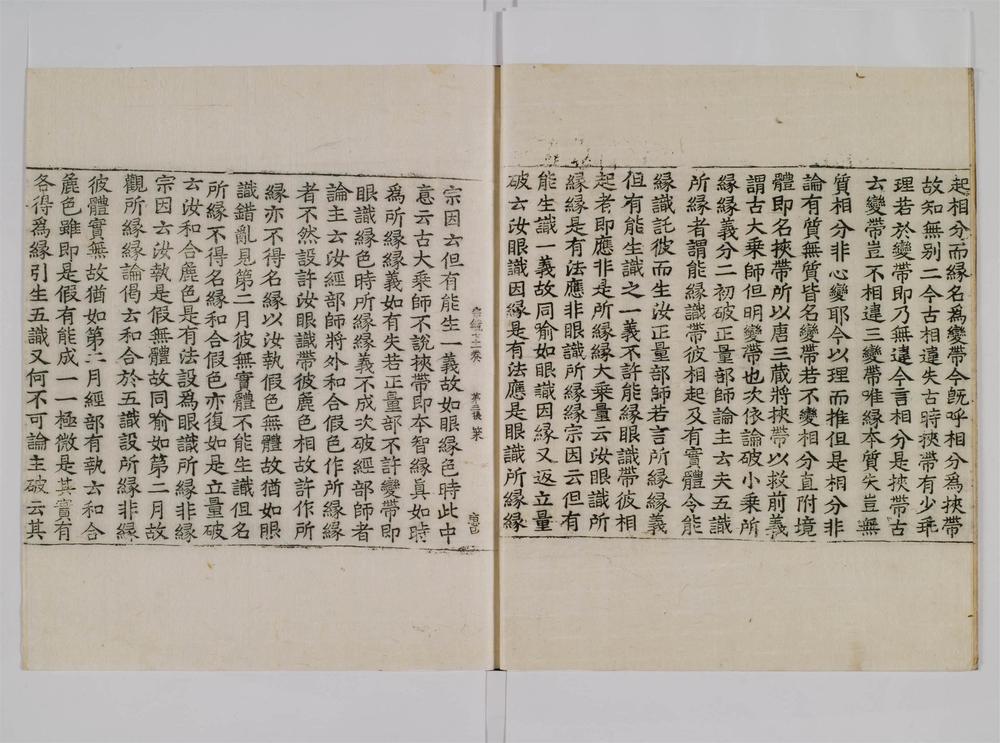 起相分而縁名爲變帶今旣呼相分爲挾帶
故知無别二今古相違失古時挾帶有少乖
理若於變帶即乃無違今言相分是挾帶古
去變帶豈不相違三變帶唯縁本質失豈無
質相分非心變耶今以理而推但是相分非
論有質無質皆名變帶若不變相分直附境
體即名挾帶所以唐三蔵將挾帶以救前義
謂古大乘師但明變帶也次依論破小乘所
縁縁義分二初破正量部師論主云夫五識
所縁縁者謂能縁識帶彼相起及有實體令能
縁識託彼而生汝正量部師若言所縁縁義
但有能生識之一義不許能縁眼識帶彼相
起者即應非是所縁縁大乘量云汝眼識所
縁縁是有法應非眼識所縁縁宗因云但有
能生識一義故同喻如眼識因縁又返立量
破云汝眼識因縁是有法應是眼識所縁縁
宗鏡七十二卷 第三張 策
宗因云但有能生一義故如眼縁色時此中
意云古大乘師不說挾帶即本智縁眞如時
爲所縁縁義如有失若正量部不許變帶即
眼識縁色時所縁縁義不成次破經部師者
論主云汝經部師將外和合假色作所縁縁
者不然設許汝眼識帶彼麁色相故許作所
縁亦不得名縁以汝執假色無體故猶如眼
識錯亂見第二月彼無實體不能生識但名
所縁不得名縁和合假色亦復如是立量破
云汝和合麁色是有法設爲眼識所縁非縁
宗因云汝執是假無體故同喻如第二月故
觀所縁縁論偈云和合於五識設所縁非縁
彼體實無故猶如第二月經部有執云和合
麁色雖即是假有能成一一極微是其實有
各得爲縁引生五識又何不可論主破云其